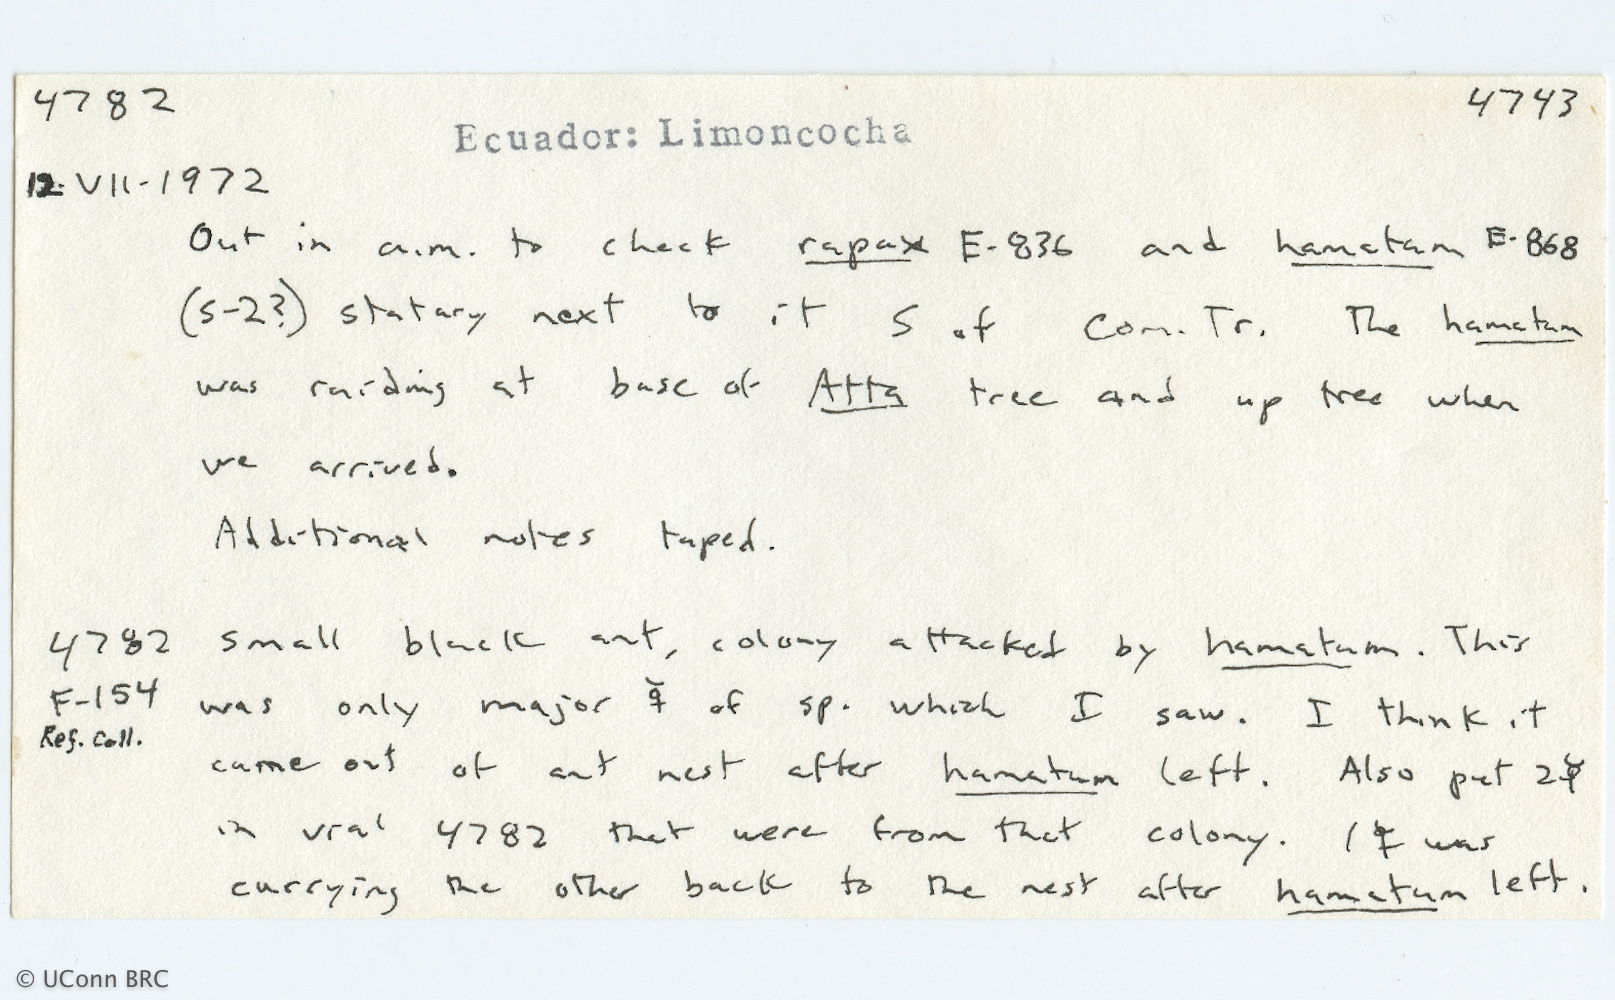 4782 4743
Ecuador: Limoncocha
12. VII-1972
Out in a.m. to check rapax E-836 and hamatum E-868
(S-2?) statary next to it S of Con. Tr. The hamatum
was raiding at base of Atta tree and up tree when
we arrived.
Additional notes taped.
4782 small black ant, colony attacked by hamatum. This
F-154 was only major ☿ of sp. which I saw. I think it
Ref. Coll.
came out of ant nest after hamatum left. Also put 2☿
in vial 4782 that were from that colony. 1 ☿ was
carrying the other back to the nest after hamatum left.
© UConn BRC